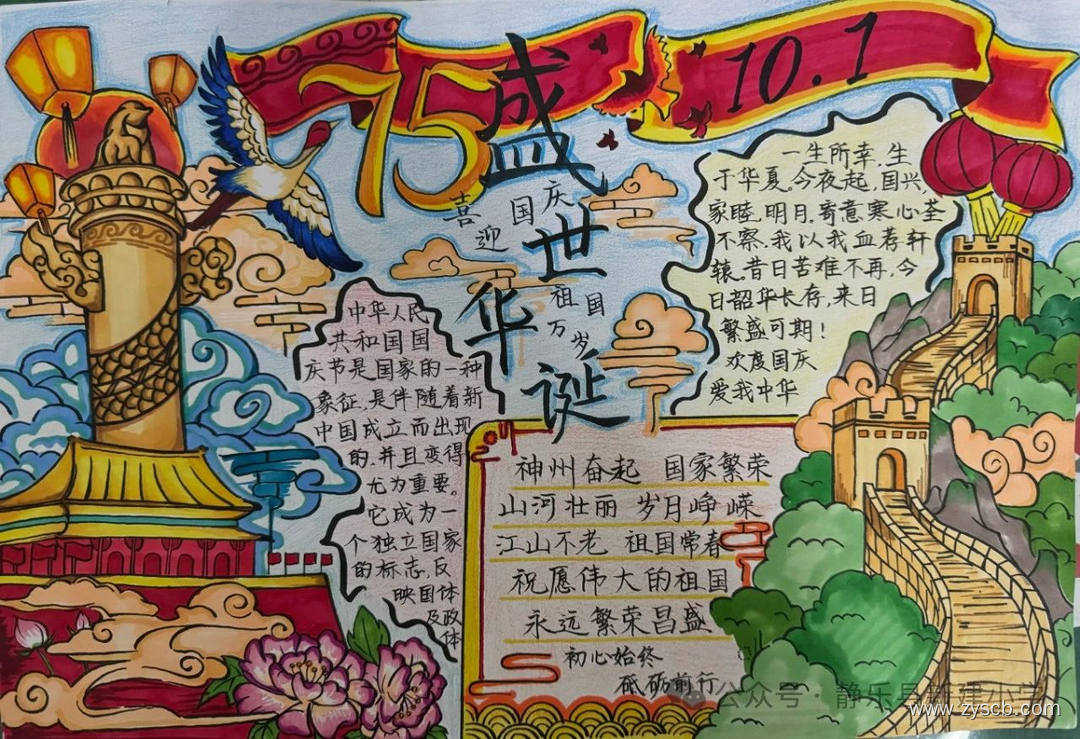 75
盛世华诞
10.1
喜迎国庆
祖国万岁
一生所幸.生
于华夏.今夜起.国兴,
家睦.明月.寄意.寒心荃
不察.我以我血荐轩
辕.昔日苦难不再.今
日韶华长存,来日
繁盛可期!
欢度国庆
爱我中华
中华人民
共和国国
庆节是国家的一种
象征.是伴随着新
中国成立而出现
的.并且变得
尤为重要。
它成为一
个独立国家
的标志,反
映国体
及政
体
神州奋起 国家繁荣
山河壮丽 岁月峥嵘
江山不老 祖国常春
祝愿伟大的祖国
永远繁荣昌盛
初心始终
砥砺前行
公众号·静乐县新建小学
www.zyscb.com